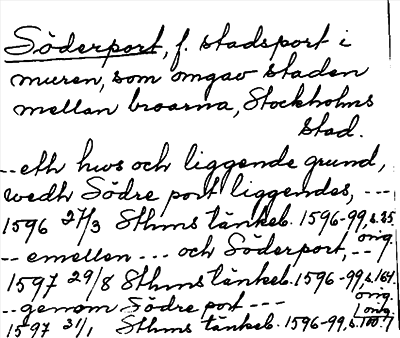 Söderport, f. stadsport i
muren, som omgav staden
mellan broarna, Stockholms
stad.
-- eth hws och liggende grund,
wedh Södre port liggendes, ---
1596 27/3 Sthms tänkeb. 1596-99, s. 35
orig.
-- emellen --- och Söderport, --
1597 29/8 Sthms tänkeb. 1596-99, s. 164.
orig.
-- genom Södre port ---
1597 31/1 Sthms tänkeb. 1596-99, s. 100.
orig.